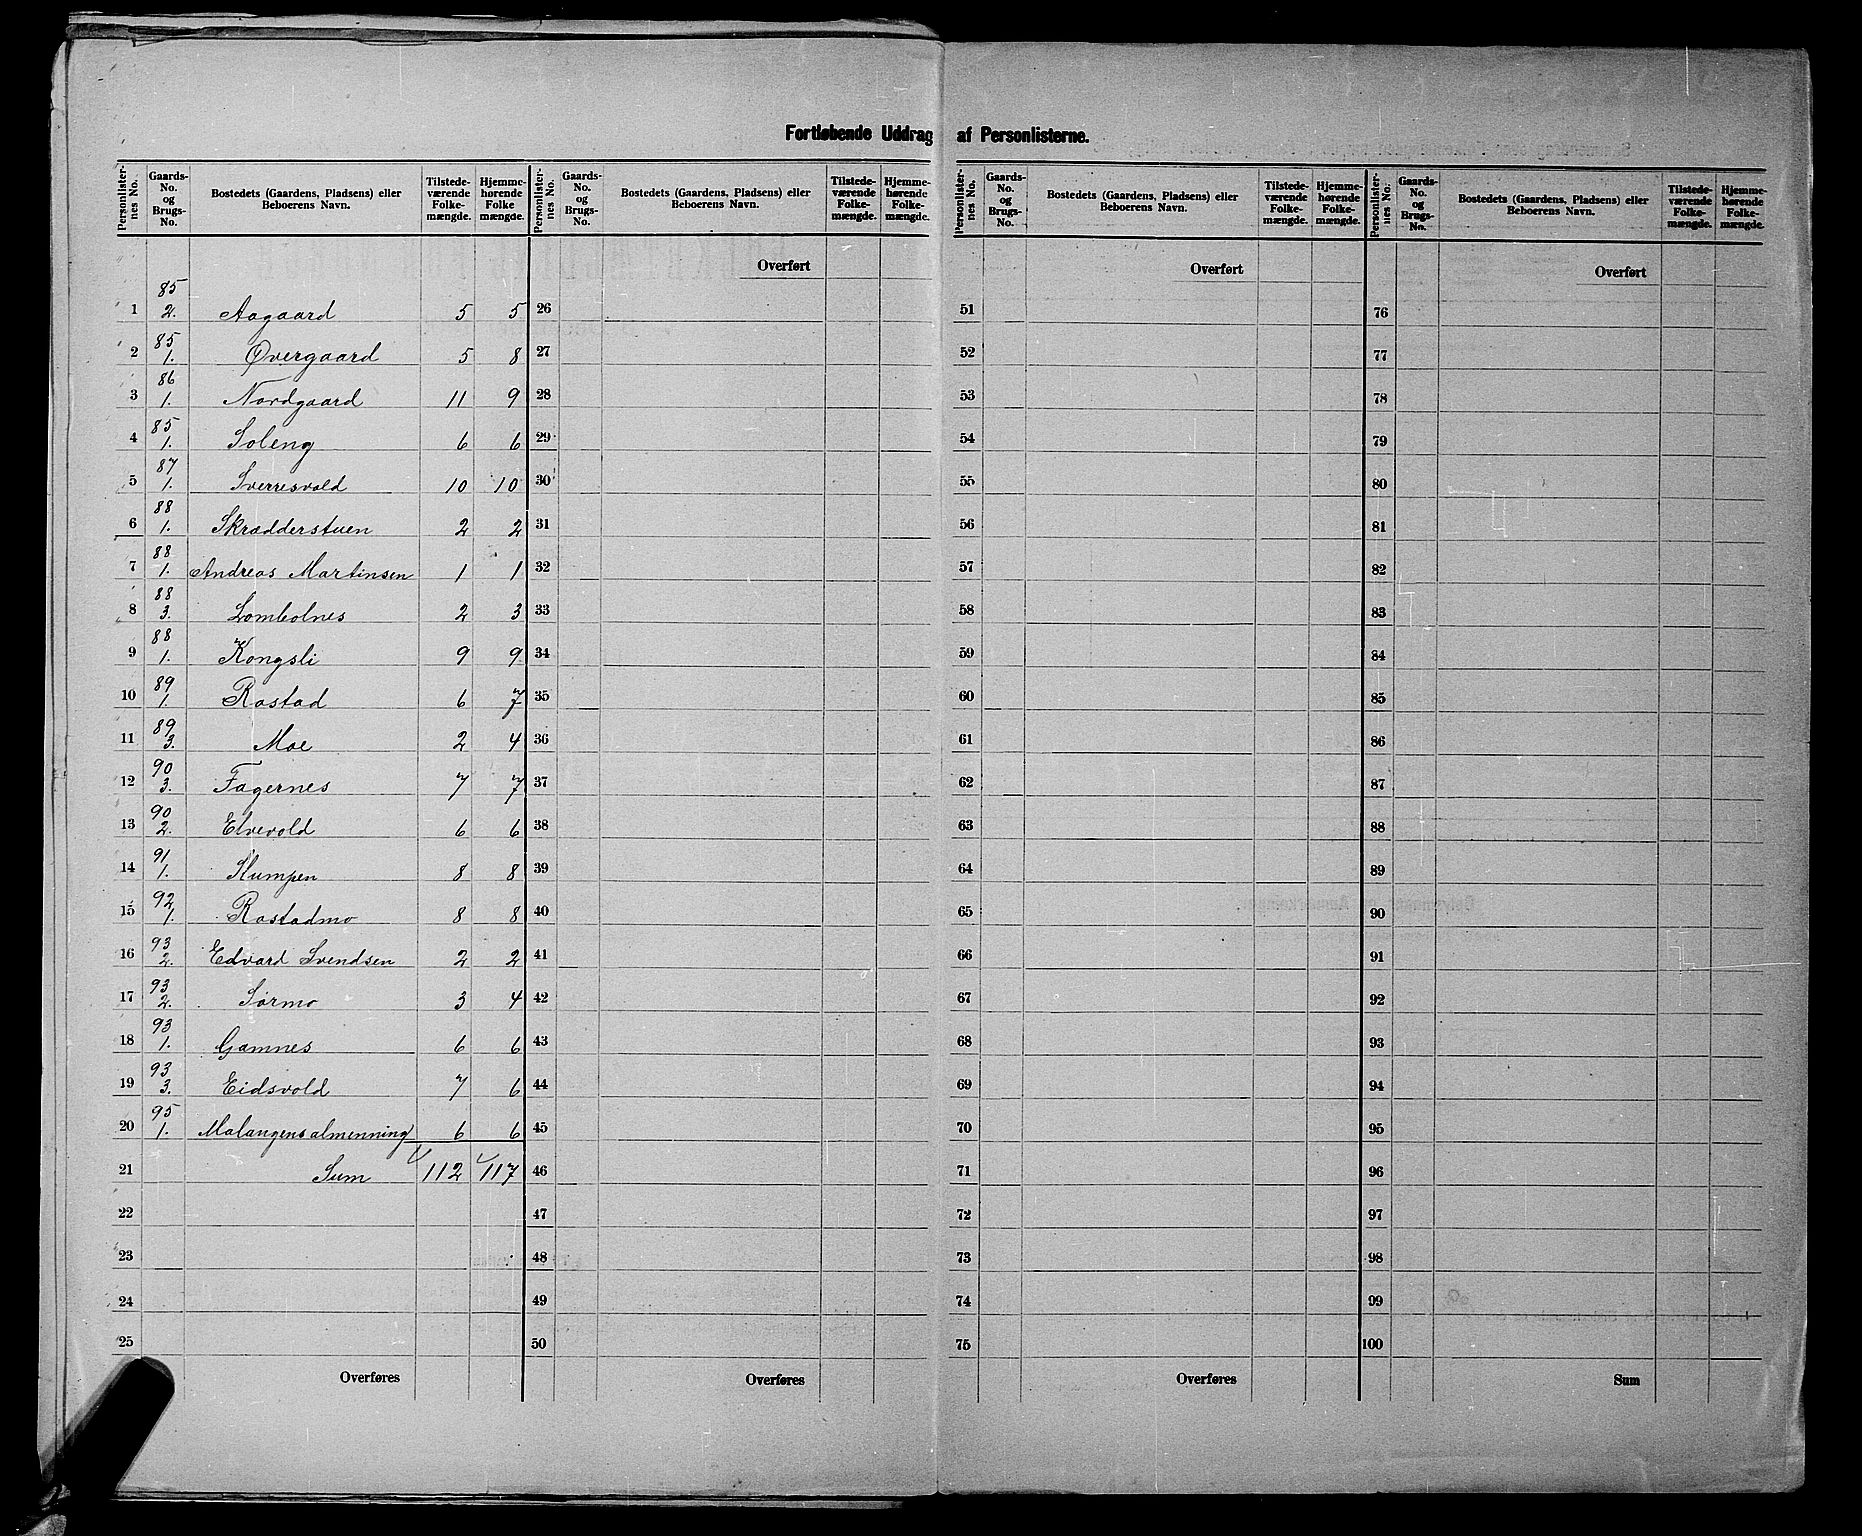 Fortløbende Uddrag af Personlisterne.
Personlisternes No. | Gaards-No. og Brugs-No. | Bostedets (Gaardens, Pladsens) eller Beboerens Navn. | Tilstedeværende Folkemængde. | Hjemmehørende Folkemængde. | Personlisternes No. | Gaards-No. og Brugs-No. | Bostedets (Gaardens, Pladsens) eller Beboerens Navn. | Tilstedeværende Folkemængde. | Hjemmehørende Folkemængde. | Personlisternes No. | Gaards-No. og Brugs-No. | Bostedets (Gaardens, Pladsens) eller Beboerens Navn. | Tilstedeværende Folkemængde. | Hjemmehørende Folkemængde. | Personlisternes No. | Gaards-No. og Brugs-No. | Bostedets (Gaardens, Pladsens) eller Beboerens Navn. | Tilstedeværende Folkemængde. | Hjemmehørende Folkemængde.
Overført | Overført | Overført
1 | 85 2. | Aagaard | 5 | 5 | 26 | 51 | 76
2 | 85 1. | Øvergaard | 5 | 8 | 27 | 52 | 77
3 | 86 1. | Nordgaard | 11 | 9 | 28 | 53 | 78
4 | 85 1. | Soleng | 6 | 6 | 29 | 54 | 79
5 | 87 1. | Sverresvold | 10 | 10 | 30 | 55 | 80
6 | 88 1. | Skrædderstuen | 2 | 2 | 31 | 56 | 81
7 | 88 1. | Andreas Martinsen | 1 | 1 | 32 | 57 | 82
8 | 88 3. | Lombolnes | 2 | 3 | 33 | 58 | 83
9 | 88 1. | Kongsli | 9 | 9 | 34 | 59 | 84
10 | 89 1. | Rostad | 6 | 7 | 35 | 60 | 85
11 | 89 3. | Moe | 2 | 4 | 36 | 61 | 86
12 | 90 3. | Fagernes | 7 | 7 | 37 | 62 | 87
13 | 90 2. | Elvevold | 6 | 6 | 38 | 63 | 88
14 | 91 1. | Kumpen | 8 | 8 | 39 | 64 | 89
15 | 92 1. | Rostadmo | 8 | 8 | 40 | 65 | 90
16 | 93 2. | Edvard Svendsen | 2 | 2 | 41 | 66 | 91
17 | 93 2. | Sørmo | 3 | 4 | 42 | 67 | 92
18 | 93 1. | Gamnes | 6 | 6 | 43 | 68 | 93
19 | 93 3. | Eidsvold | 7 | 6 | 44 | 69 | 94
20 | 95 1. | Malangensalmenning | 6 | 6 | 45 | 70 | 95
21 | Sum | 112 | 117 | 46 | 71 | 96
22 | 47 | 72 | 97
23 | 48 | 73 | 98
24 | 49 | 74 | 99
25 | 50 | 75 | 100
Overføres | Overføres | Overføres | Sum